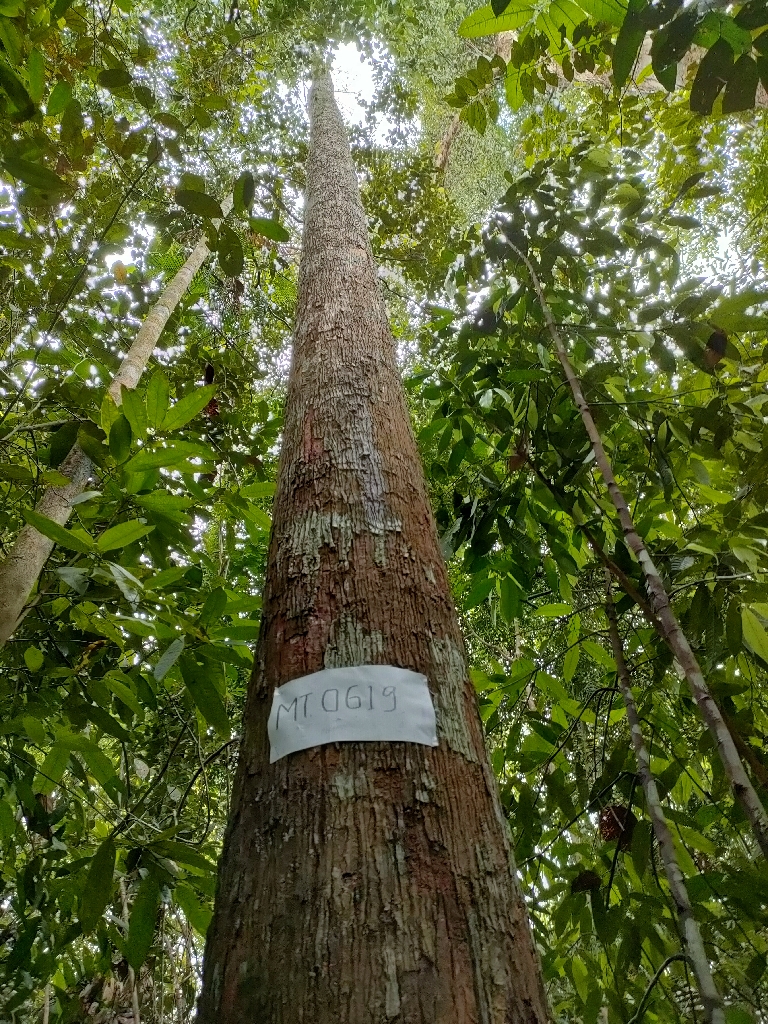 MT 0619